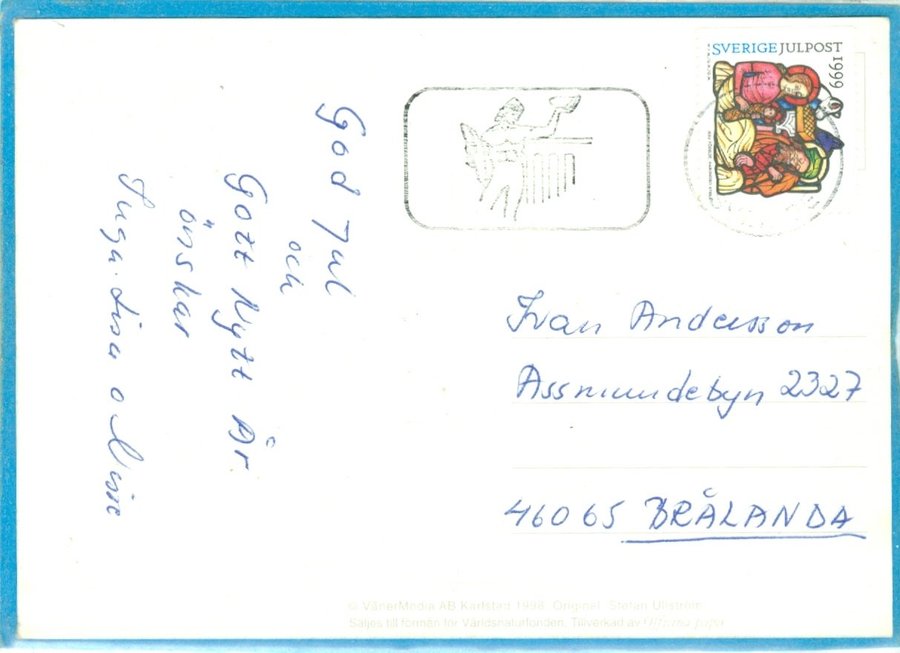 God Jul
och
Gott Nytt År
önskar
Inga-Lisa o Nisse
SVERIGE JULPOST
1999
Ivan Andersson
Assmundebyn 2327
46065 BRÅLANDA
© VänerMedia AB Karlstad 1998. Original: Stefan Ullström
Säljes till förmån för Världsnaturfonden. Tillverkad av